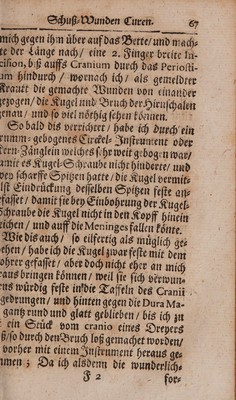 Schuß-Wunden Curen. 67
mich gegen ihm über auf das Bette/ und mach-
te der Länge nach/ eine 2. Finger breite In-
cision, biß auffs Cranium durch das Periosti-
um hindurch/ wornach ich/ als gemeldter
Krantt die gemachte Wunden von einander
gezogen/ die Kugel und Bruch der Hirnschalen
gesehen/ und so viel nöthig sehen können.
So bald dis verrichtet/ habe ich durch ein
krumm-gebogenes Circkel-Instrument oder
Kern-Zänglein welches sehr weit gebogen war/
damit es Kugel-Schraube nicht hinderte/ und
bey scharffe Spitzen hatte/ die Kugel vermit-
telst Eindrückung desselben Spitzen feste an-
gefasset/ damit sie bey Einbohrung der Kugel-
Schraube die Kugel nicht in den Kopff hinein
weichen/ und auff die Meninges fallen könte.
Wie dis auch/ so eilfertig als müglich ge-
schehen/ habe ich die Kugel zwar feste mit dem
Bohrer gefasset/ aber doch nicht eher an mich
heraus bringen können/ weil sie sich verwun-
derns würdig feste in die Taffeln des Cranii
gedrungen/ und hinten gegen die Dura Ma-
gantz rund und glatt geblieben/ bis ich zu
ein Stück vom cranio eines Dreyers
groß/ so durch den Bruch loß gemacht worden/
vorher mit einem Instrument heraus ge-
nommen; Da ich alsdenn die wunderlich-
F 2 for-